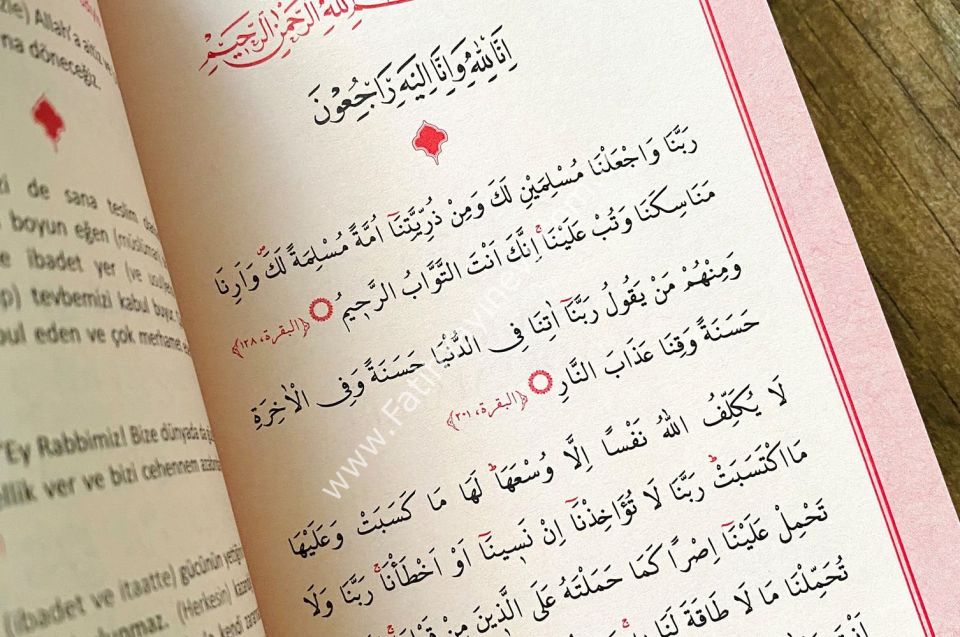 Allah'a aitiz ve
döneceğiz.
de sana teslim
boyun eğen (müslüman
ibadet yer (ve
tevbemizi kabul
eden ve çok merhamet
"Ey Rabbimiz! Bize dünyada
ver ve bizi cehennem
(ibadet ve itaatte) gücünün
(Herkesin)
kendi
اللهِ الرَّحْمٰنِ الرَّحِيمِ
اِنَّا لِلّٰهِ وَاِنَّٓا اِلَيْهِ رَاجِعُونَ
رَبَّنَا وَاجْعَلْنَا مُسْلِمَيْنِ لَكَ وَمِنْ ذُرِّيَّتِنَٓا اُمَّةً مُسْلِمَةً لَكَۖ وَاَرِنَا
مَنَاسِكَنَا وَتُبْ عَلَيْنَاۚ اِنَّكَ اَنْتَ التَّوَّابُ الرَّحِيمُ ﴿البقرة، ١٢٨﴾
وَمِنْهُمْ مَنْ يَقُولُ رَبَّنَٓا اٰتِنَا فِي الدُّنْيَا حَسَنَةً وَفِي الْاٰخِرَةِ
حَسَنَةً وَقِنَا عَذَابَ النَّارِ ﴿البقرة، ٢٠١﴾
لَا يُكَلِّفُ اللّٰهُ نَفْسًا اِلَّا وُسْعَهَاۜ لَهَا مَا كَسَبَتْ وَعَلَيْهَا
مَا اكْتَسَبَتْۜ رَبَّنَا لَا تُؤَاخِذْنَٓا اِنْ نَسِينَٓا اَوْ اَخْطَأْنَاۚ رَبَّنَا وَلَا
تَحْمِلْ عَلَيْنَٓا اِصْرًا كَمَا حَمَلْتَهُ عَلَى الَّذِينَ مِنْ قَبْلِنَاۚ
تُحَمِّلْنَا مَا لَا طَاقَةَ لَنَا
اَنْتَ